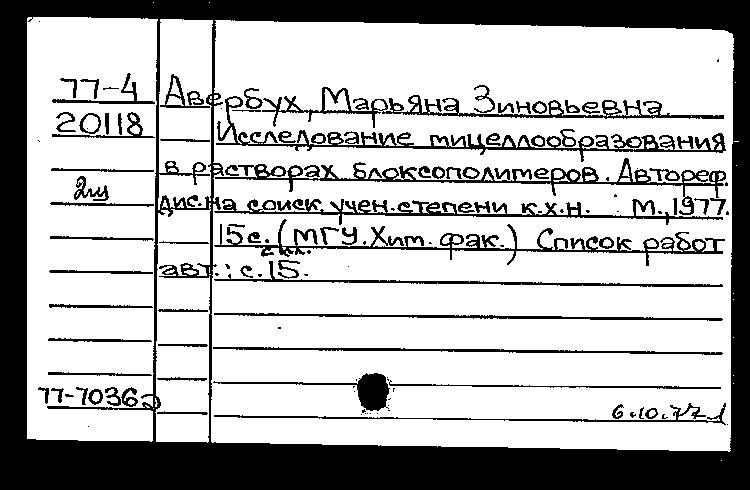 77-4 Авербух, Марьяна Зиновьевна.
20118 Исследование мицеллообразования
в растворах блоксополимеров. Автореф.
2ш дис. на соиск. учен. степени к.х.н. М., 1977.
15 с. (МГУ. Хим. фак.) Список работ
с ил.
авт.: с. 15.
77-7036
6.10.77